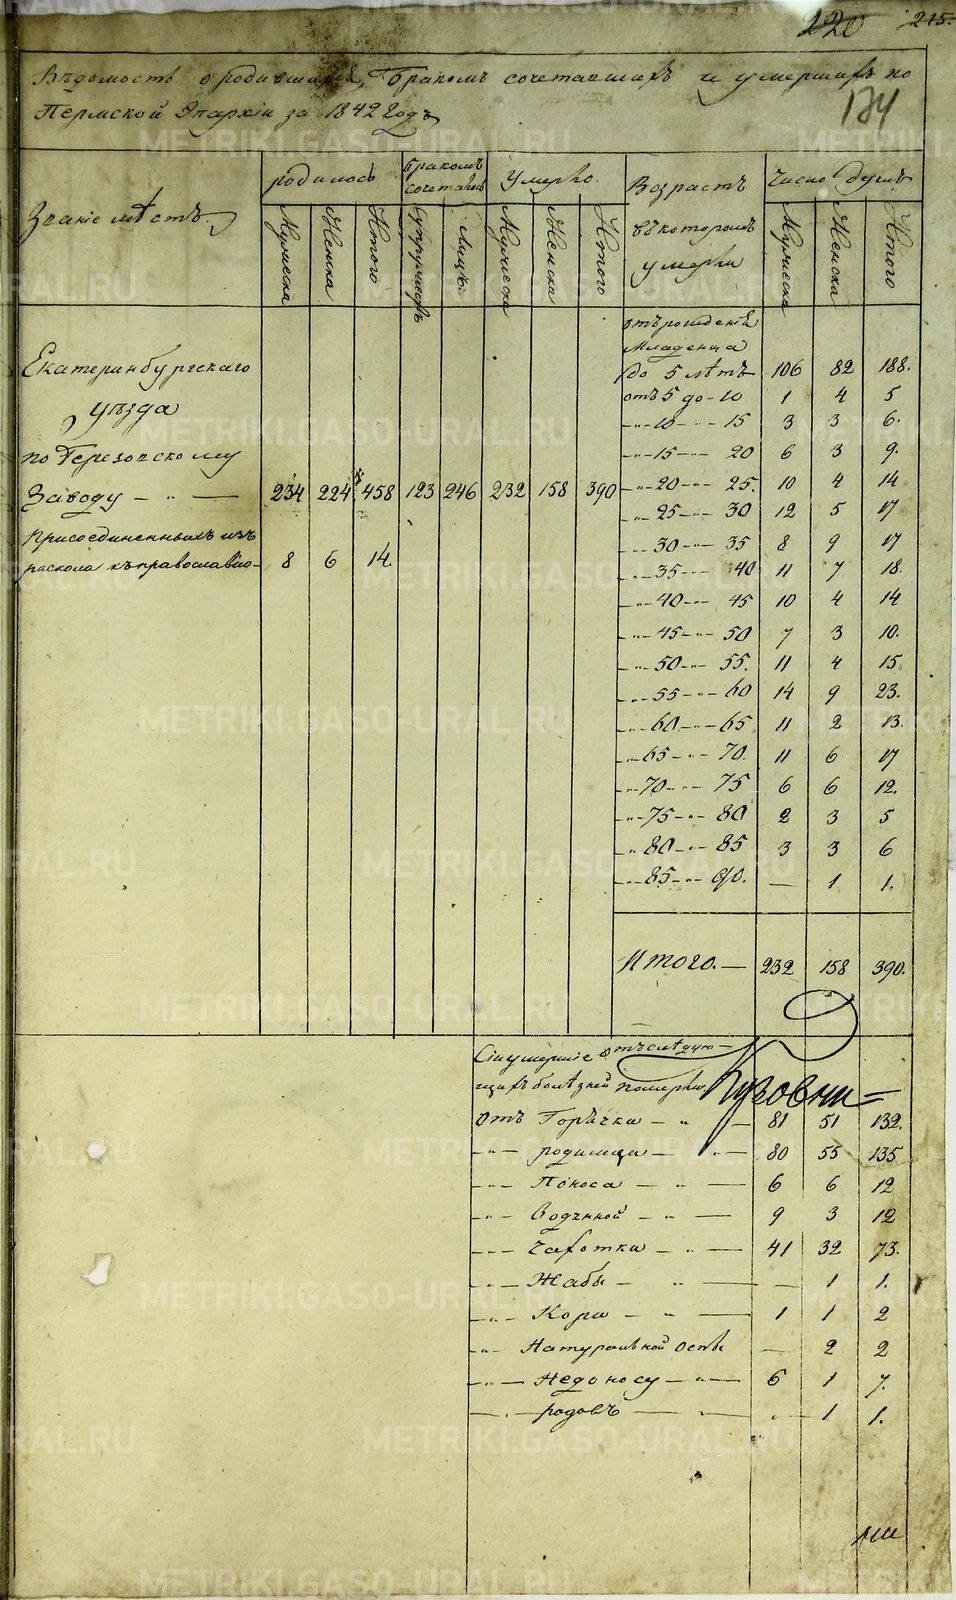 220 215.
Вѣдомость о родившихся, бракомъ сочетавшихъ и умершихъ по
Пермской Епархіи за 1842 годъ
174
Званіе мѣстъ. родилось бракомъ сочеталось Умерло. Возрастъ въ которомъ умерли Число душъ
Мужеска Женска Итого супружествъ лицъ. Мужеска Женска Итого Мужеска Женска Итого
отъ рожденія
Младенца
Екатеринбургскаго до 5 лѣтъ 106 82 188.
отъ 5 до - 10 1 4 5
уѣзда
-"-10-"- 15 3 3 6.
по Березовскому -"-15-"- 20 6 3 9.
Заводу - " - 234 224 458 123 246 232 158 390 -"-20-"- 25. 10 4 14
-"-25-"- 30 12 5 17
Присоединенныхъ изъ -"-30-"- 35 8 9 17
раскола къ православію- 8 6 14. -"-35-"- 40 11 7 18.
-"-40-"- 45 10 4 14
-"-45-"- 50 7 3 10.
-"-50-"- 55. 11 4 15
-"-55-"- 60 14 9 23.
-"-60-"- 65 11 2 13.
-"-65-"- 70. 11 6 17
-"-70-"- 75 6 6 12.
-"-75-"- 80 2 3 5
-"-80-"- 85 3 3 6
-"-85-"- 90. — 1 1.
Итого. — 232 158 390.
Сіи умершіе отъ слѣдую-
щихъ болѣзней померли
отъ Горячка - " - 81 51 132.
-"- родимца - " - 80 55 135
-"- Поноса - " - 6 6 12
-"- Водяной - " - 9 3 12
-"- Чахотки - " - 41 32 73.
-"- Жабы - " - — 1 1.
-"- Кори - " - 1 1 2
-"- Натуральной Оспы — 2 2
-"- Недоносу - " - 6 1 7.
-"- родовъ - " - " 1 1.
METRIKI.GASO-URAL.RU